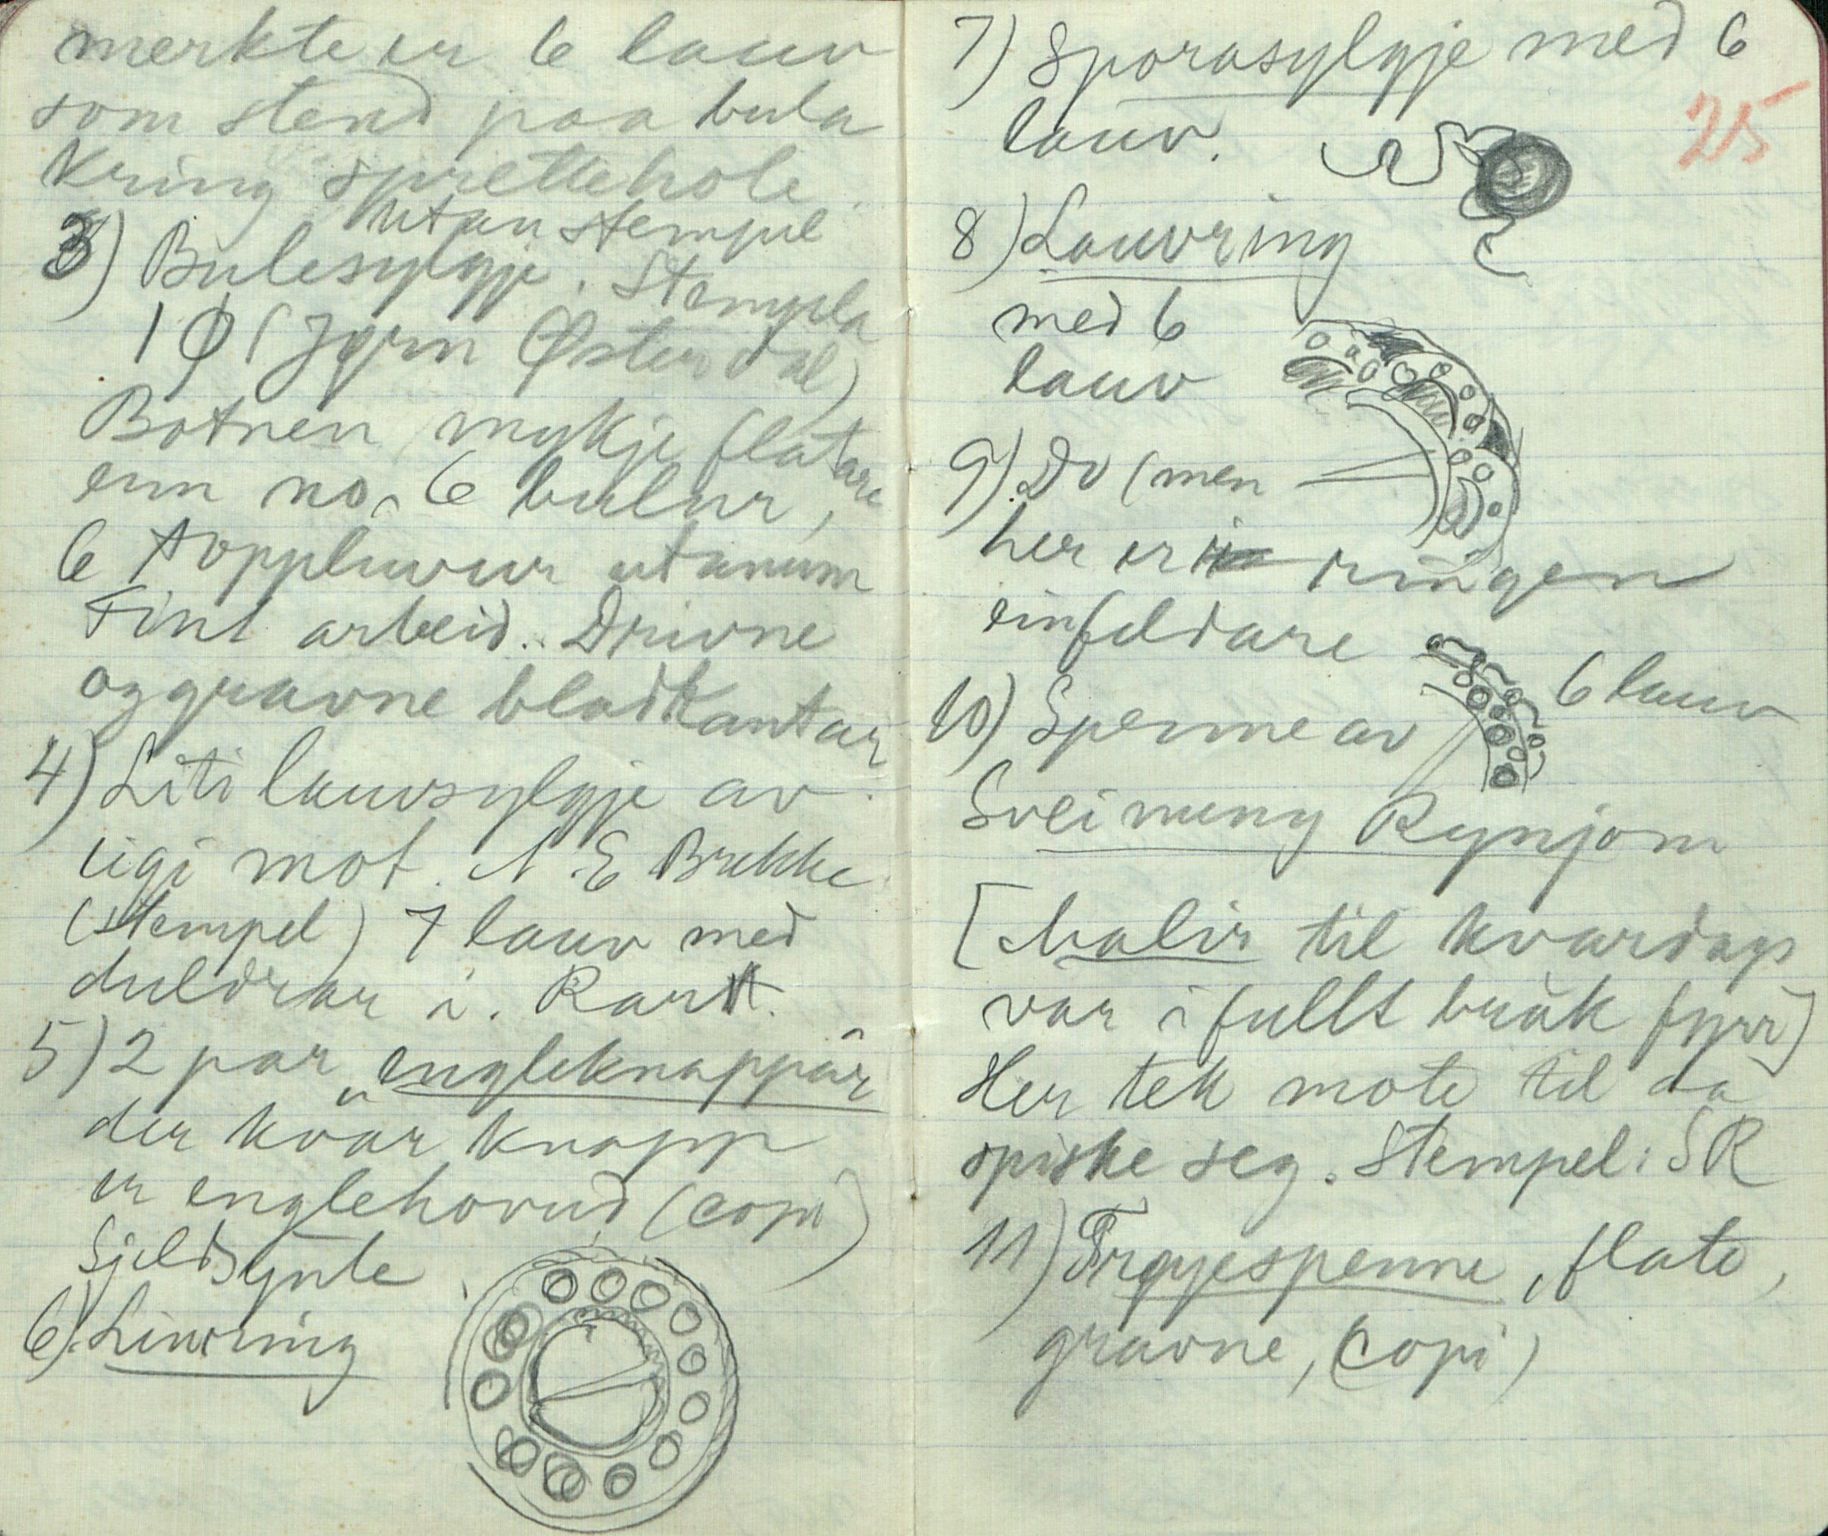 merkte er 6 lauv
som stend paa bula
kring sprettehole.
utan stempel
3) Bulesylgje. Stempla
1 Ø (Jørn Østerdal)
Botnen mykje flatare
enn no. 6 bular,
6 toppluvur utanum
Fint arbeid. Drivne
og gravne bladkantar
4) Liti lauvsylgje av
eigi mot. N E Brekke
(stempel) 7 lauv med
duldrar i. Rart.
5) 2 par "engleknappar"
der kvar knapp
er englehovud (copi)
Sjeldsynte
6) Linring
7) Sporasylgje med 6
lauv.
25
8) Lauvring
med 6
lauv
9) Do (men
her er ringen
einfeldare
6 lauv
10) Spenne av
Sveinung Rynjom
[Malir til kvardags
var i fullt bruk fyrr]
Her tek mote til da
spiske seg. Stempel: SR
11) Trøyespenne, flate,
gravne, (copi)